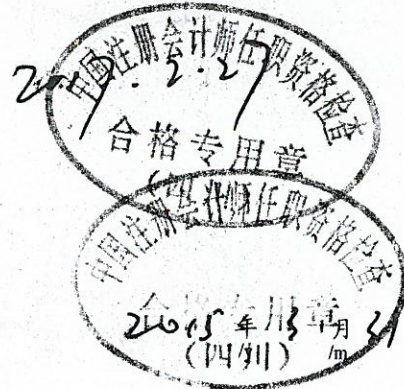 中国注册会计师任职资格检查
合格专用章
中国注册会计师任职资格检查
合格专用章
2015年3月31
(四川)
/m